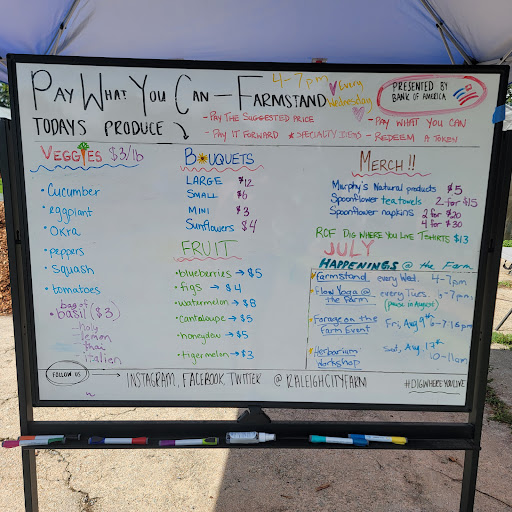 PAY WHAT YOU CAN - FARMSTAND
4-7pm
Every Wednesday
PRESENTED BY
BANK OF AMERICA
TODAYS PRODUCE
- PAY THE SUGGESTED PRICE
- PAY IT FORWARD * SPECIALTY ITEMS
- PAY WHAT YOU CAN
- REDEEM A TOKEN
VEGGIES $3/lb
• Cucumber
• eggplant
• OKRA
• peppers
• Squash
• tomatoes
bag of
• basil ($3)
- holy
- lemon
- thai
- italian
BOUQUETS
LARGE $12
SMALL $6
MINI $3
Sunflowers $4
FRUIT
• blueberries → $5
• figs → $4
• watermelon → $8
• Cantaloupe → $5
• honeydew → $5
• tigermelon → $3
MERCH!!
Murphy's Natural products $5
Spoonflower tea towels 2 for $15
Spoonflower napkins 2 for $20
4 for $30
RCF DIG WHERE YOU LIVE TSHIRTS $13
JULY
HAPPENINGS @ the FARM
Farmstand every Wed. 4-7pm
Flow Yoga @ the Farm every Tues. 6-7pm
(pause in August)
Forage on the Farm Event Fri, Aug 9th 6-7:15pm
Herbarium Workshop Sat, Aug. 17th
10-11am
FOLLOW US → INSTAGRAM, FACEBOOK, TWITTER @RALEIGHCITYFARM
#DIGWHEREYOULIVE